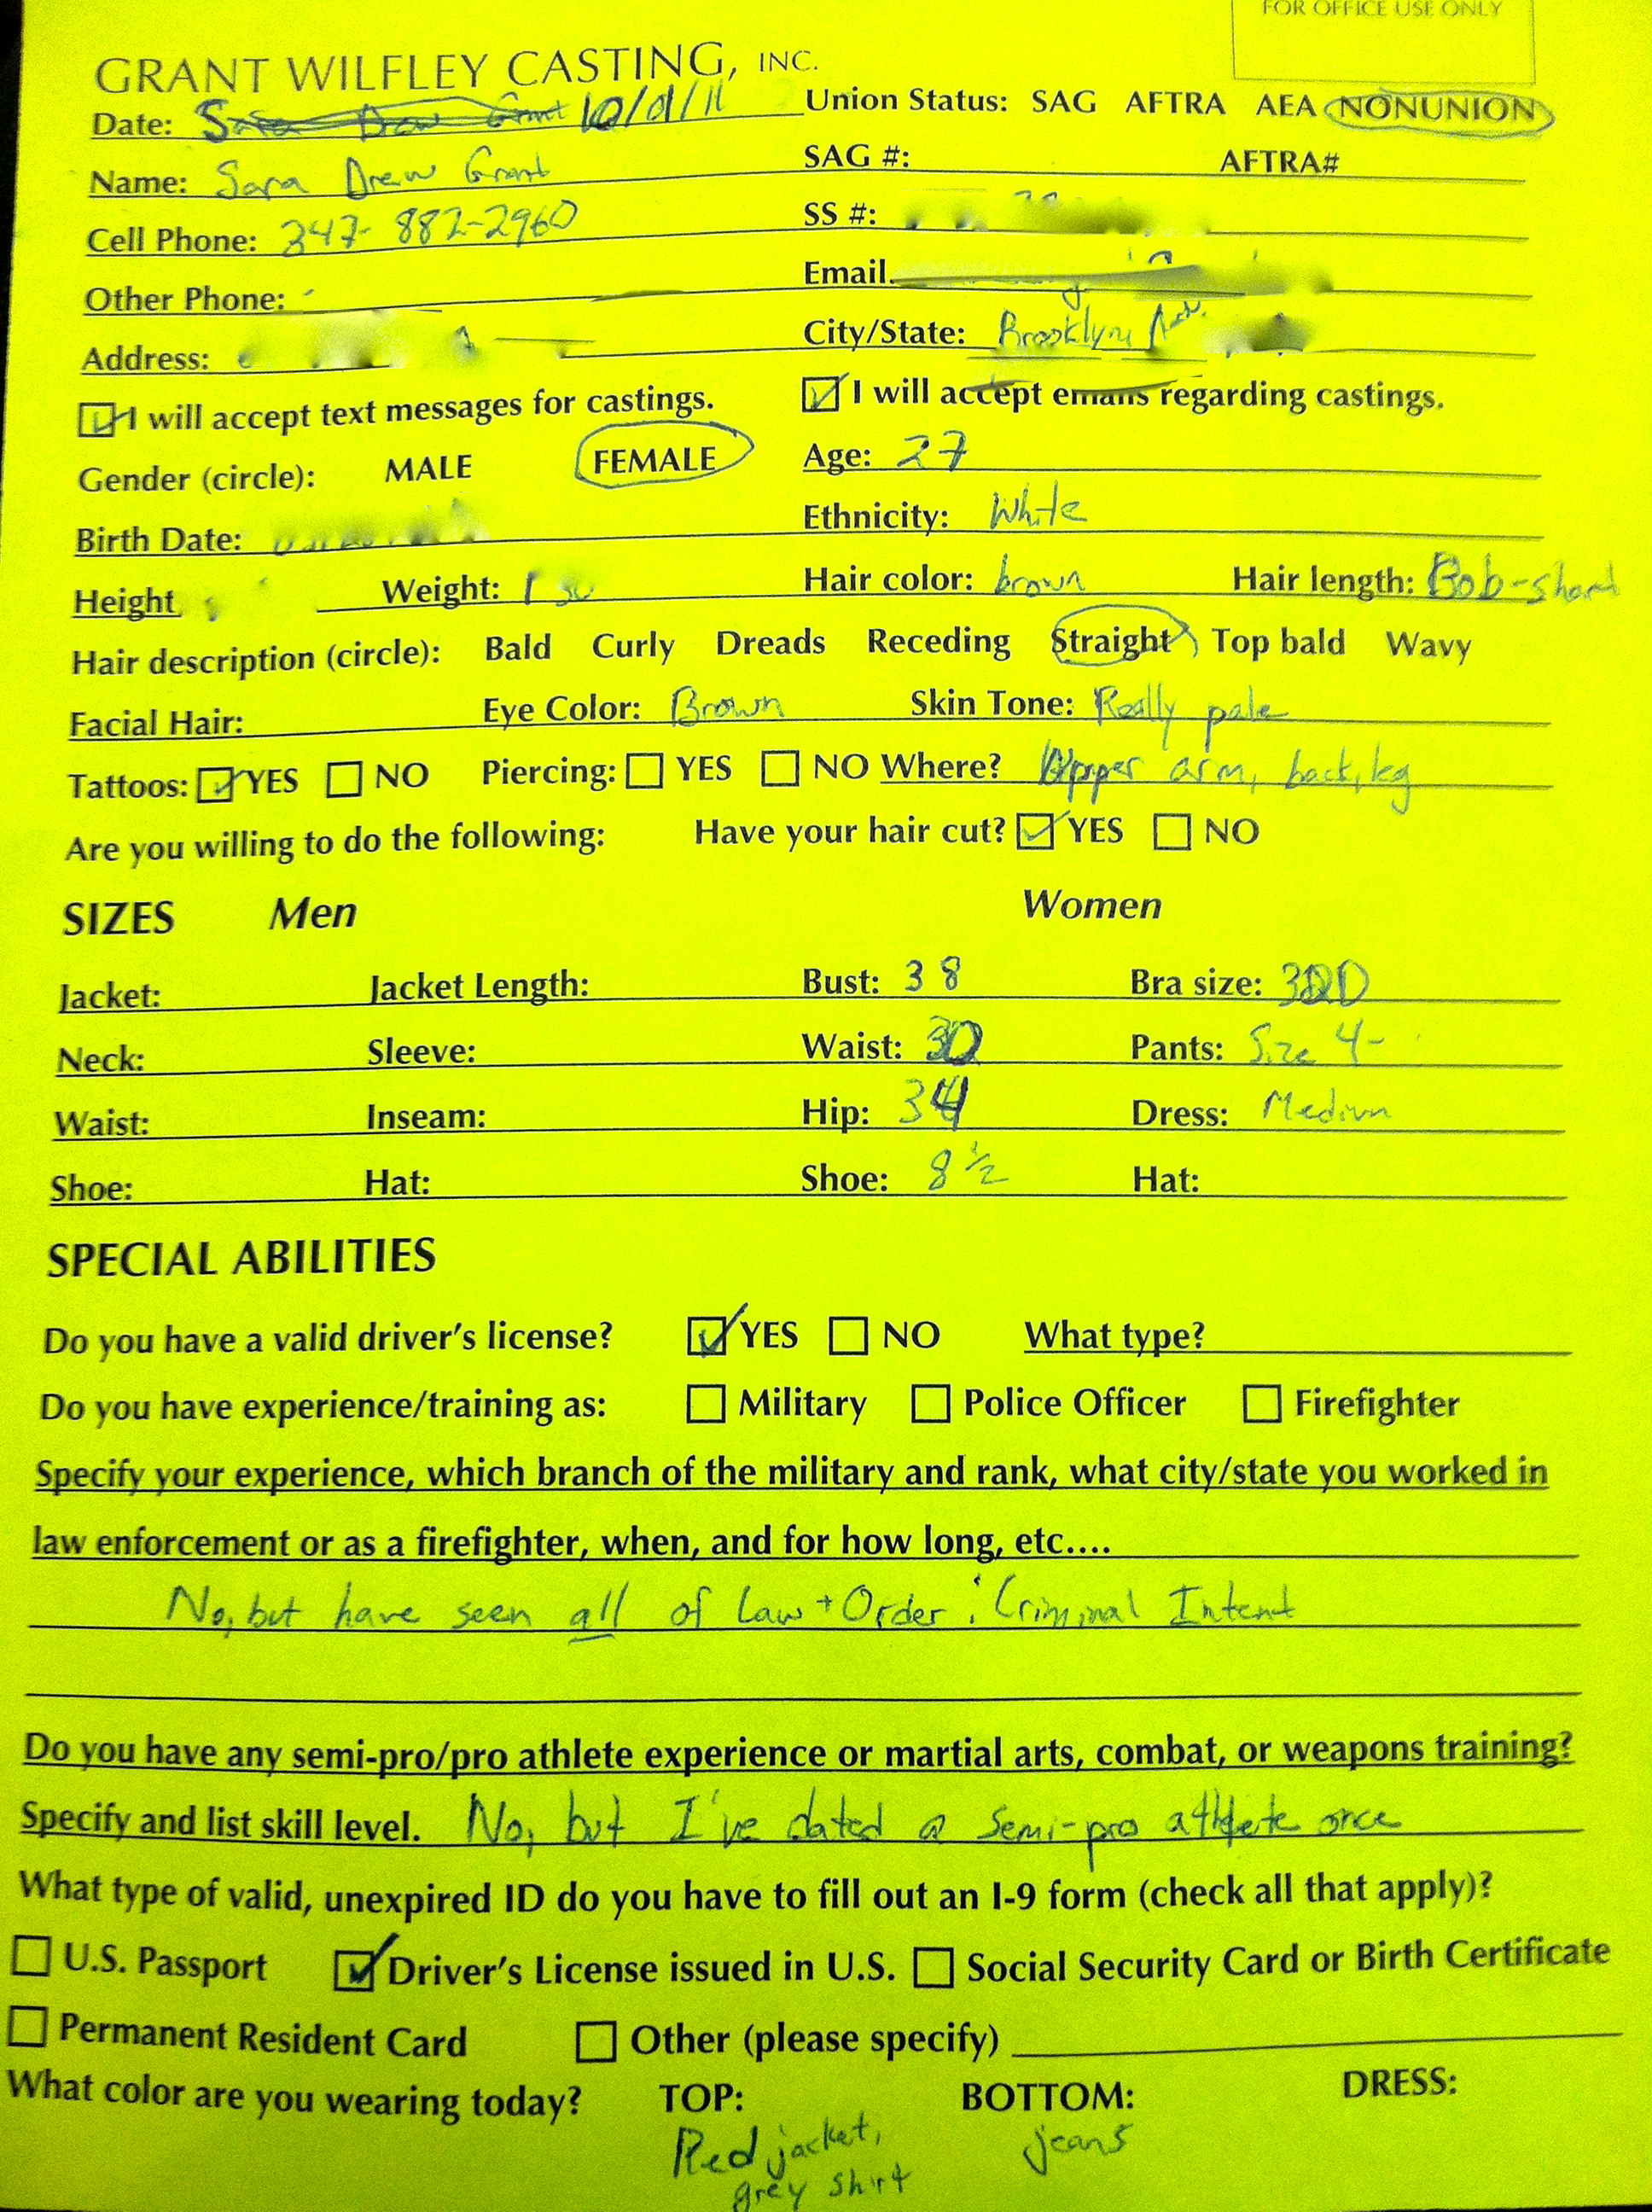 FOR OFFICE USE ONLY
GRANT WILFLEY CASTING, INC.
Date: Sara Drew Grant 10/1/11 Union Status: SAG AFTRA AEA NONUNION
Name: Sara Drew Grant SAG #: AFTRA#
Cell Phone: 347-882-2960 SS #:
Other Phone: Email
Address: City/State: Brooklyn,
I will accept text messages for castings. I will accept emails regarding castings.
Gender (circle): MALE FEMALE Age: 27
Birth Date: Ethnicity: White
Height Weight: Hair color: brown Hair length: Bob-short
Hair description (circle): Bald Curly Dreads Receding Straight Top bald Wavy
Facial Hair: Eye Color: Brown Skin Tone: Really pale
Tattoos: YES NO Piercing: YES NO Where? Upper arm, back, leg
Are you willing to do the following: Have your hair cut? YES NO
SIZES Men Women
Jacket: Jacket Length: Bust: 38 Bra size:
Neck: Sleeve: Waist: 30 Pants: Size 4-
Waist: Inseam: Hip: 34 Dress: Medium
Shoe: Hat: Shoe: 8 1/2 Hat:
SPECIAL ABILITIES
Do you have a valid driver's license? YES NO What type?
Do you have experience/training as: Military Police Officer Firefighter
Specify your experience, which branch of the military and rank, what city/state you worked in
law enforcement or as a firefighter, when, and for how long, etc....
No, but have seen all of Law + Order: Criminal Intent
Do you have any semi-pro/pro athlete experience or martial arts, combat, or weapons training?
Specify and list skill level. No, but I've dated a semi-pro athlete once
What type of valid, unexpired ID do you have to fill out an I-9 form (check all that apply)?
U.S. Passport Driver's License issued in U.S. Social Security Card or Birth Certificate
Permanent Resident Card Other (please specify)
What color are you wearing today? TOP: BOTTOM: DRESS:
Red jacket, jeans
grey shirt